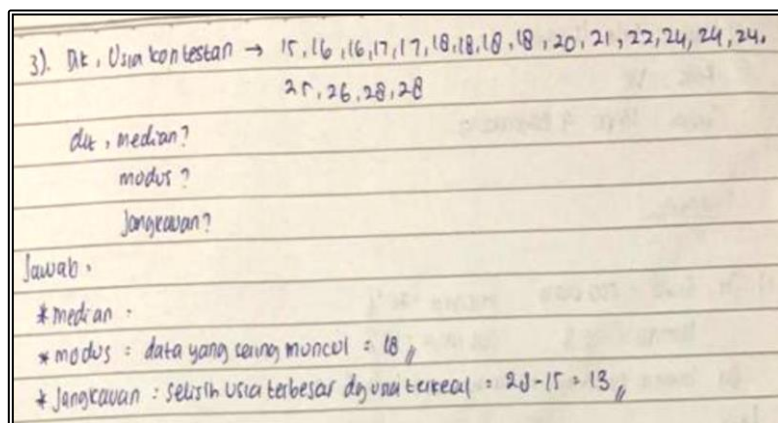 3). Dik, Usia kontestan → 15,16,16,17,17,18,18,18,18,20,21,22,24,24,24,
25,26,28,28
dit, median?
modus?
Jangkauan?
Jawab,
* median :
* modus : data yang sering muncul = 18 //
* Jangkauan : selisih usia terbesar dg usia terkecil = 28-15 = 13 //